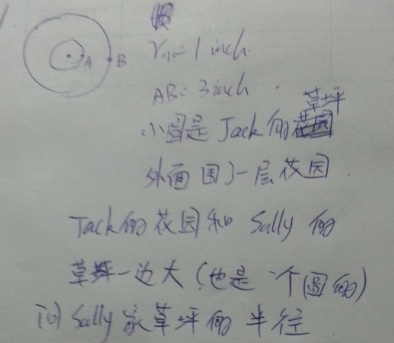 A B
r小=1 inch
AB=3 inch
草坪
小圆是Jack的
外面围了一层花园.
Jack的花园和Sally的
草坪一边大(也是一个圆的)
问Sally家草坪的半径